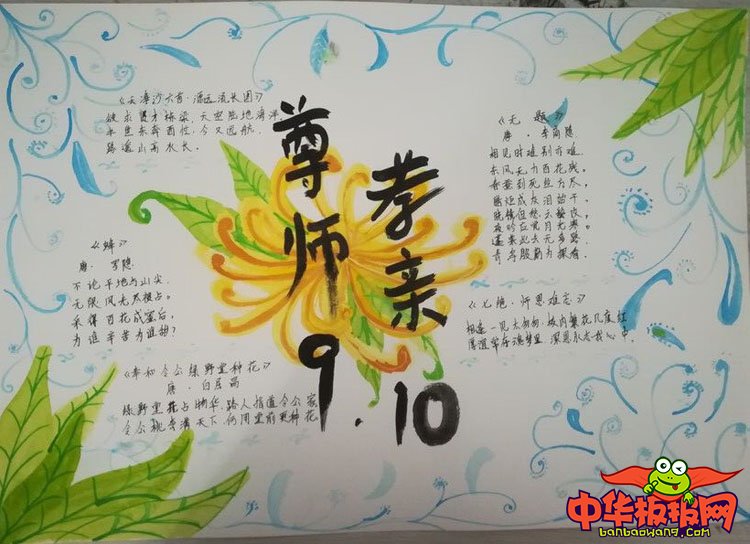 尊师
孝亲
9.10
路遥山高水长.
《蜂》
唐·罗隐
不论平地与山尖
无限风光尽被占。
采得百花成蜜后,
为谁辛苦为谁甜?
《奉和令公绿野堂种花》
唐·白居易
绿野堂开占物华.路人指道令公家
令公桃李满天下.何用堂前更种花
《无题》
唐·李商隐
相见时难别亦难
东风无力百花残。
春蚕到死丝方尽,
蜡炬成灰泪始干
晓镜但愁云鬓改,
夜吟应觉月光寒。
蓬来此去无多路
青鸟殷勤为探看
《七绝·师恩难忘》
相逢一见太匆匆.校内繁花几度红
厚谊常存魂梦里 深恩永志我心中
中华板报网
banbaowang.com